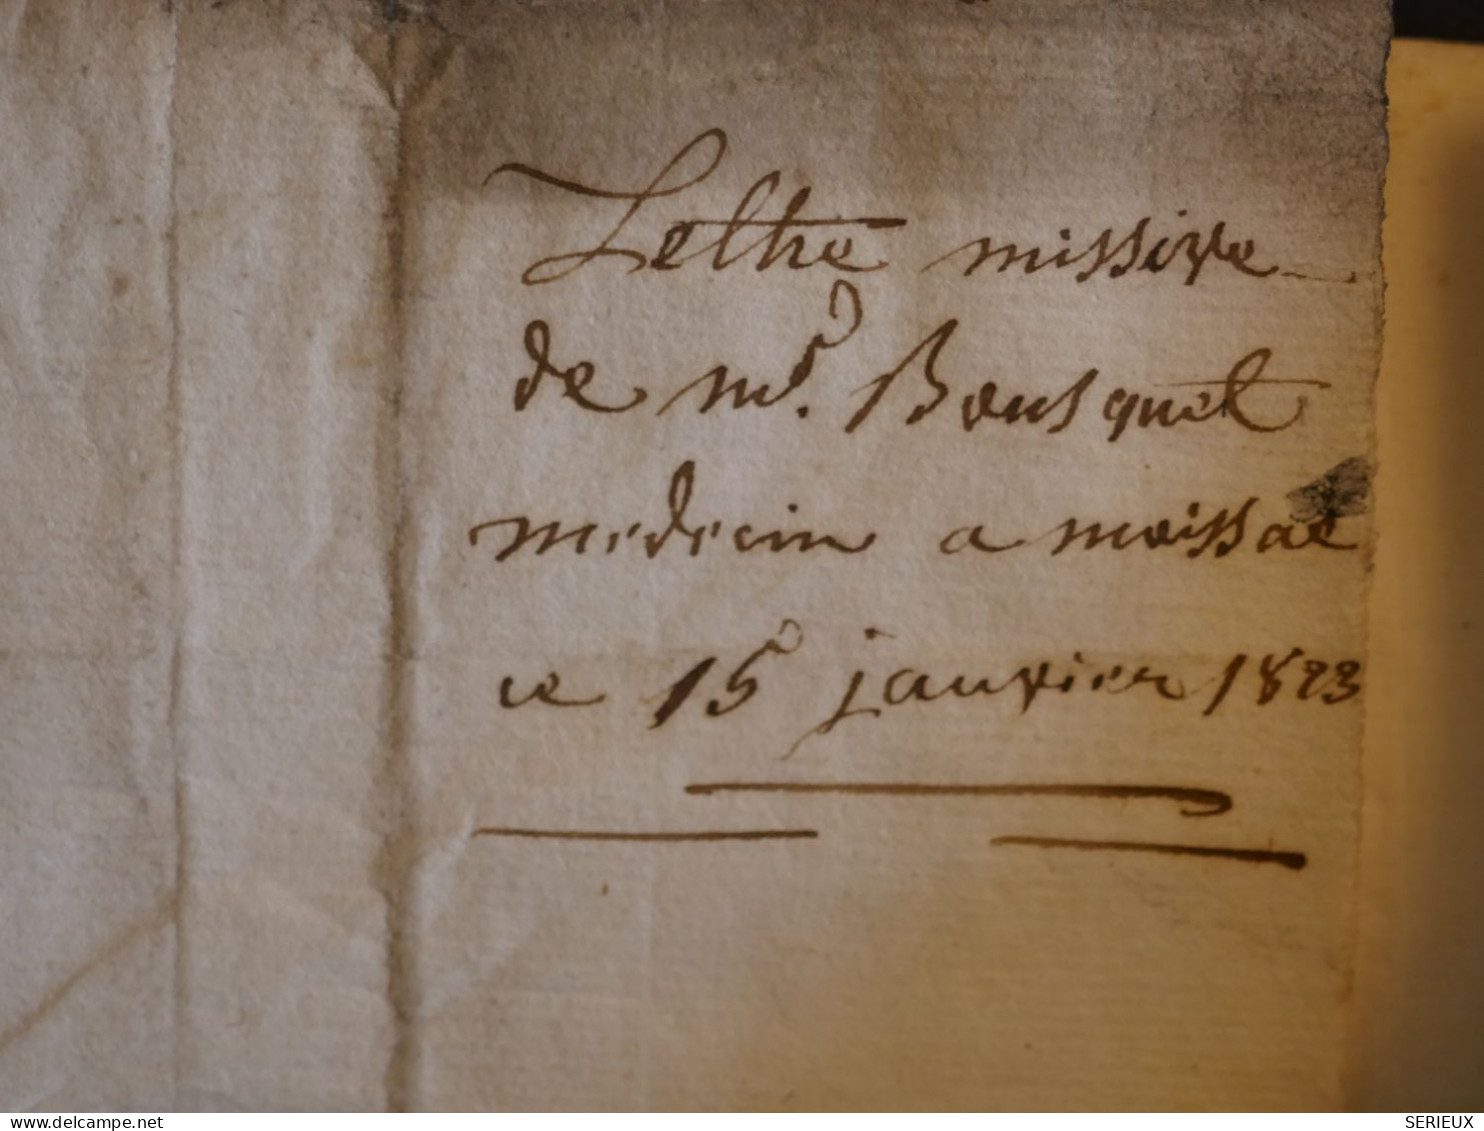 Lettre missive
de mr. Bousquet
medecin a moissac
ce 15 janvier 1823
SERIEUX